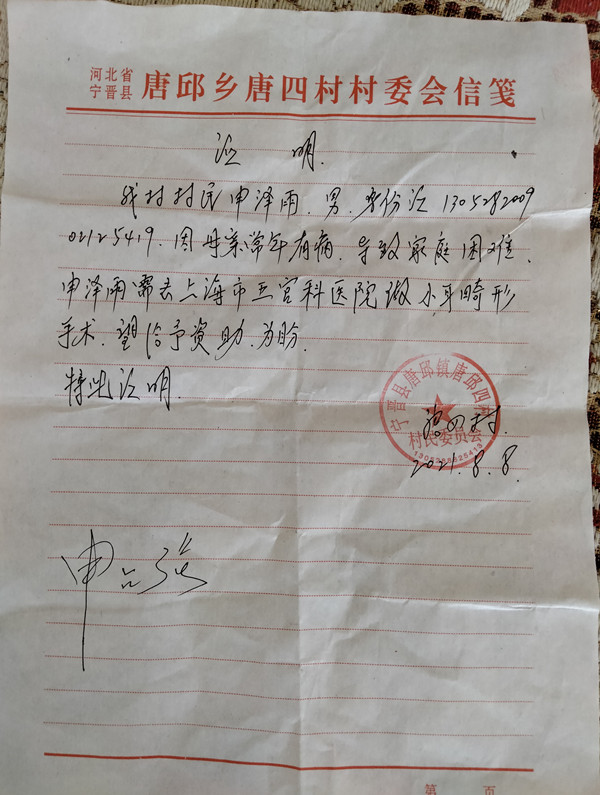 河北省
宁晋县
唐邱乡唐四村村委会信笺
证 明.
我村村民申泽雨.男.身份证1305282009
02125419.因母亲常年有病.导致家庭困难.
申泽雨需去上海市五官科医院做小耳畸形
手术.望给予资助.为盼.
特此证明.
宁晋县唐邱镇唐邱四村
村民委员会
唐四村.
2021.8.8.
第 页